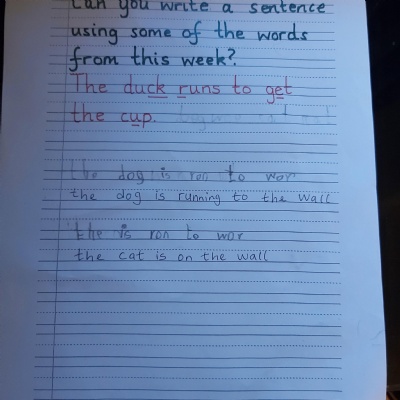 Can you write a sentence
using some of the words
from this week?
The duck runs to get
the cup.
the dog is ron to wor
the dog is running to the wall
the is ron to wor
the cat is on the wall